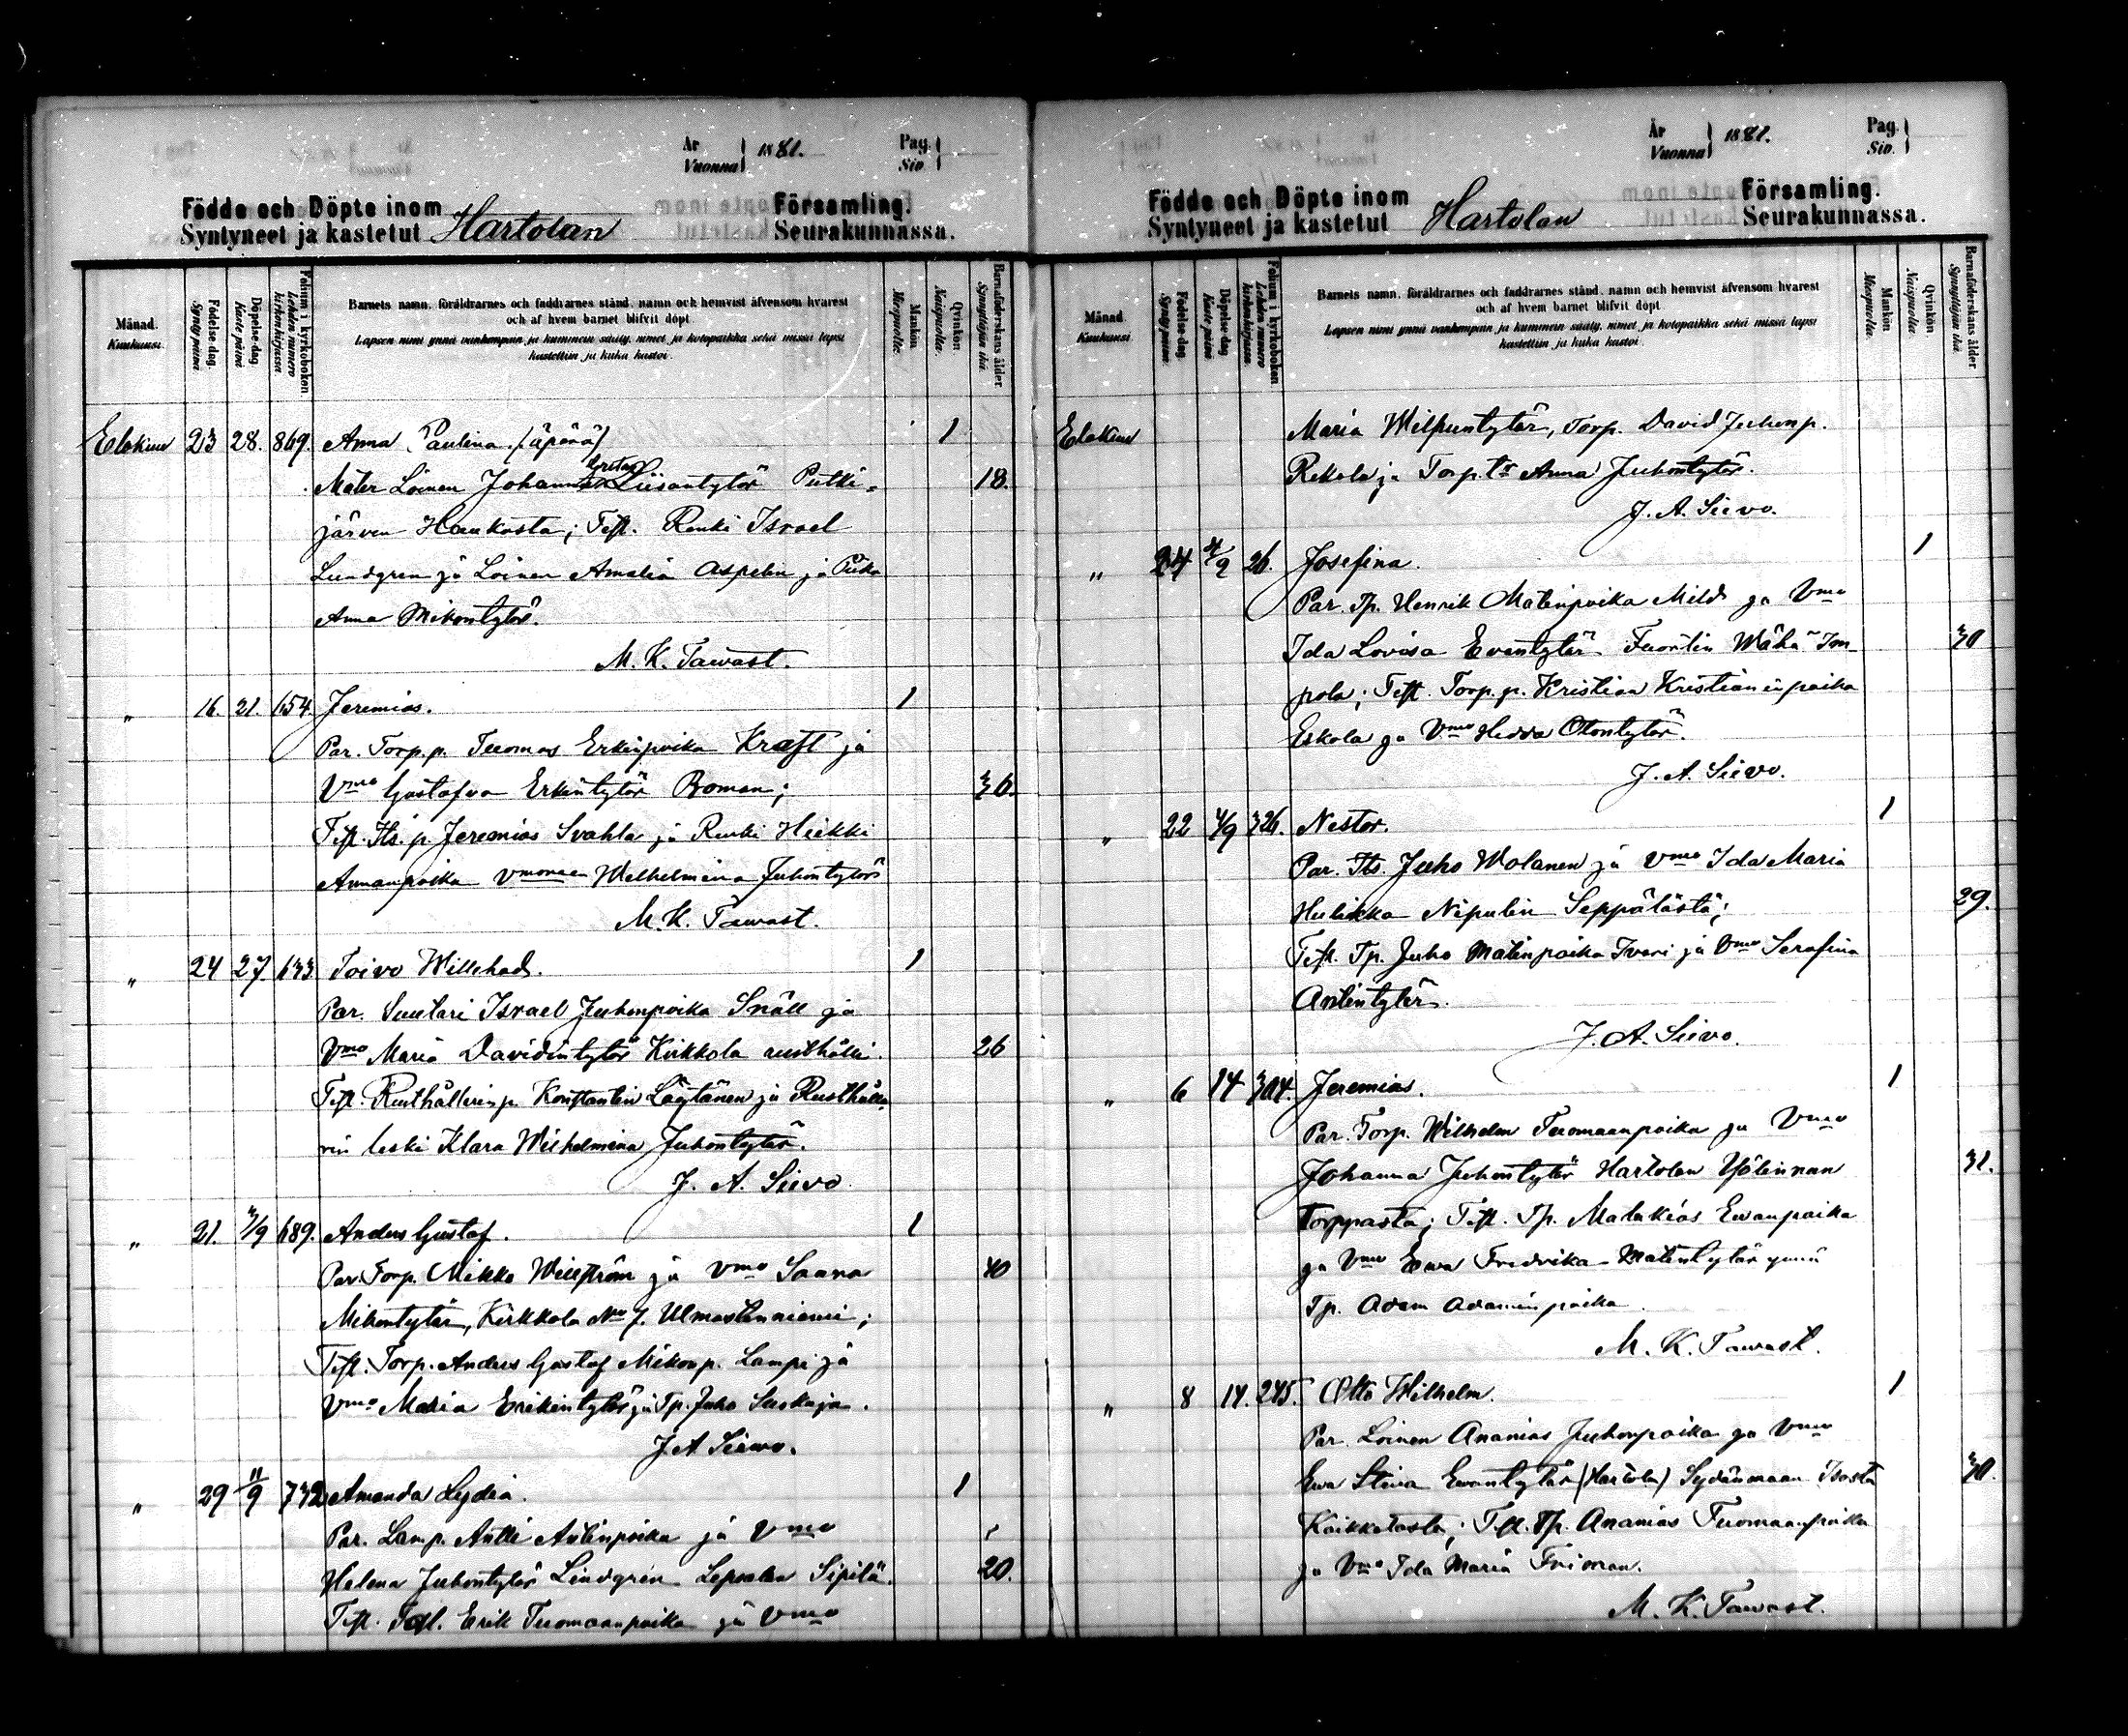 År
Vuonna } 1881.
Pag.
Siv. }
Födde och Döpte inom
Syntyneet ja kastetut Hartolan
Församling.
Seurakunnassa.
Månad.
Kuukausi.
Födelse-dag.
Synty-päivä
Döpelse-dag.
Kaste-päivä
Folium i kyrkoboken.
Lehden numero kirkonkirjassa
Barnets namn, föräldrarnes och faddrarnes stånd, namn och hemvist äfvensom hvarest
och af hvem barnet blifvit döpt.
Lapsen nimi ynnä vanhempain ja kummein sääty, nimet ja kotopaikka sekä missä lapsi
kastettiin ja kuka kastoi.
Mankön
Miespuolta.
Qvinkön
Naispuolta.
Barnaföderskans ålder.
Synnyttäjän ikä.
Elokuu 23 28. 869. Anna Paulina. (äpärä) 1
Mater Loinen Johanna Gretas Liisantytär Putki- 18.
järven Haukasta; Test. Renki Israel
Lundgren ja Loinen Amalia Aspelin ja Piika
Anna Mikontytär.
M. K. Tawast.
" 16. 21. 654. Jeremias. 1
Par. Torp.p. Tuomas Erkinpoika Kræft ja
Vmo Gustafva Erkintytär Boman; 36.
Test. Its. p. Jeremias Svahla ja Renki Heikki
Annanpoika vmoneen Wilhelmina Juhontytär
M. K. Tawast.
" 24 27. 633 Toivo Willehad. 1
Par. Suutari Israel Juhonpoika Snäll ja
Vmo Maria Davidintytär Kirkkola rusthålli. 26
Test. Rusthållarin p. Konstantin Löytänen ja Rusthålla-
rin leski Klara Wilhelmina Juhontytär.
J. A. Sievo
" 21. 4/9 689. Anders Gustaf. 1
Par. Torp. Mikko Wiliström ja Vmo Saara 40
Mikontytär, Kirkkola No 7. Ulmastenniemi;
Test. Torp. Anders Gustaf Mikonp. Lampi ja
Vmo Maria Erikintytär ja Tp. Juho Suskaja.
J. A. Siewo.
" 29 11/9 732 Amanda Lydia. 1
Par. Lamp. Antti Antinpoika ja Vmo
Helena Juhontytär Lindgren Sipilä. 20.
Test. Erik Tuomaanpoika ja Vmo
År
Vuonna } 1881.
Pag.
Siv. }
Födde och Döpte inom
Syntyneet ja kastetut Hartolan
Församling.
Seurakunnassa.
Månad
Kuukausi
Födelse-dag
Synty-päivä
Döpelse-dag
Kaste-päivä
Folium i kyrkoboken
Lehden numero kirkonkirjassa
Barnets namn, föräldrarnes och faddrarnes stånd, namn och hemvist äfvensom hvarest
och af hvem barnet blifvit döpt.
Lapsen nimi ynnä vanhempain ja kummein sääty, nimet ja kotopaikka sekä missä lapsi
kastettiin ja kuka kastoi.
Mankön
Miespuolta.
Qvinkön.
Naispuolta.
Barnaföderskans ålder
Synnyttäjän ikä.
Elokuu Maria Wilpuntytär, Torp. David Juhonp.
Rekola ja Torp.tr Anna Juhontytär.
J. A. Sievo.
" 24 4/9 26. Josefina. 1
Par. Tp. Henrik Matinpoika Mild ja Vmo
Ida Lovisa Evantytär Fuortin Wähä Jom- 30
pola; Test. Torp.p. Kristian Kristianinpoika
Eskola ja Vmo Hedda Otontytär.
J. A. Siévo.
" 22 4/9 326. Nestor. 1
Par. Its. Juho Wolanen ja Vmo Ida Maria
Hulikka Nipulin Seppälästä; 29.
Test. Tp. Juho Matinpoika Ivari ja Vmo Serafina
Antintytär.
J. A. Siévo.
" 6 14 304. Jeremias. 1
Par. Torp. Wilhelm Tuomaanpoika ja Vmo
Johanna Juhontytär Hartolan Yölinnan 31.
Torppasta; Test. Tp. Malakias Ewanpoika
ja Vmo Ewa Fredrika Matintytär ynnä
Tp. Adam Adaminpoika.
M. K. Tawast.
" 8 14. 245. Otto Wilhelm. 1
Par. Loinen Ananias Juhonpoika ja Vmo
Ewa Stiva Ewantytär (Hartola) Sydänmaan Isosta 30.
Kaikkotasta; Test. Tp. Ananias Tuomaanpoika
ja Vmo Ida Maria Friman.
M. K. Tawast.